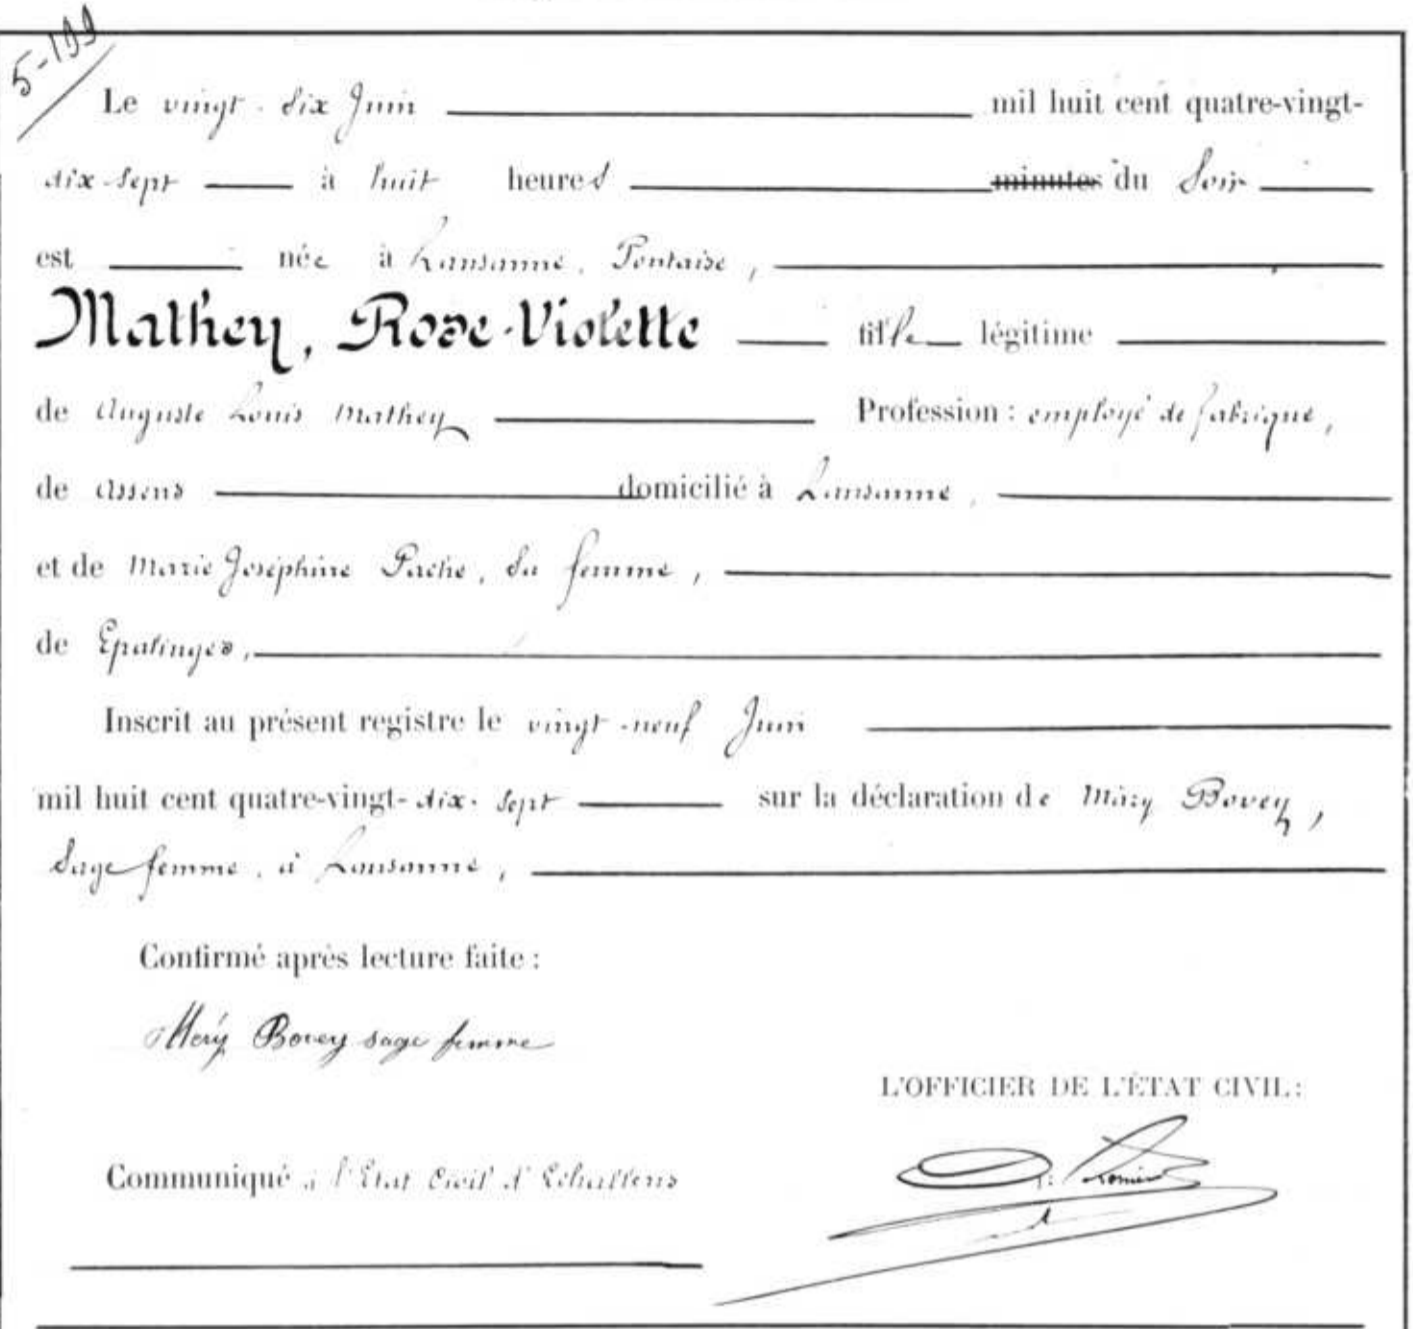 5-199
Le vingt-six Juin mil huit cent quatre-vingt-
dix-sept à huit heures minutes du Soir
est née à Lausanne, Pontaise,
Mathey, Rose-Violette fille légitime
de Auguste Louis Mathey Profession : employé de fabrique,
de Assens domicilié à Lausanne,
et de Marie Joséphine Pache, sa femme,
de Epalinges,
Inscrit au présent registre le vingt-neuf Juin
mil huit cent quatre-vingt-dix-sept sur la déclaration de Méry Bovey,
Sage femme, à Lausanne,
Confirmé après lecture faite :
Méry Bovey sage femme
L'OFFICIER DE L'ÉTAT CIVIL :
Communiqué à l'Etat Civil d'Echallens